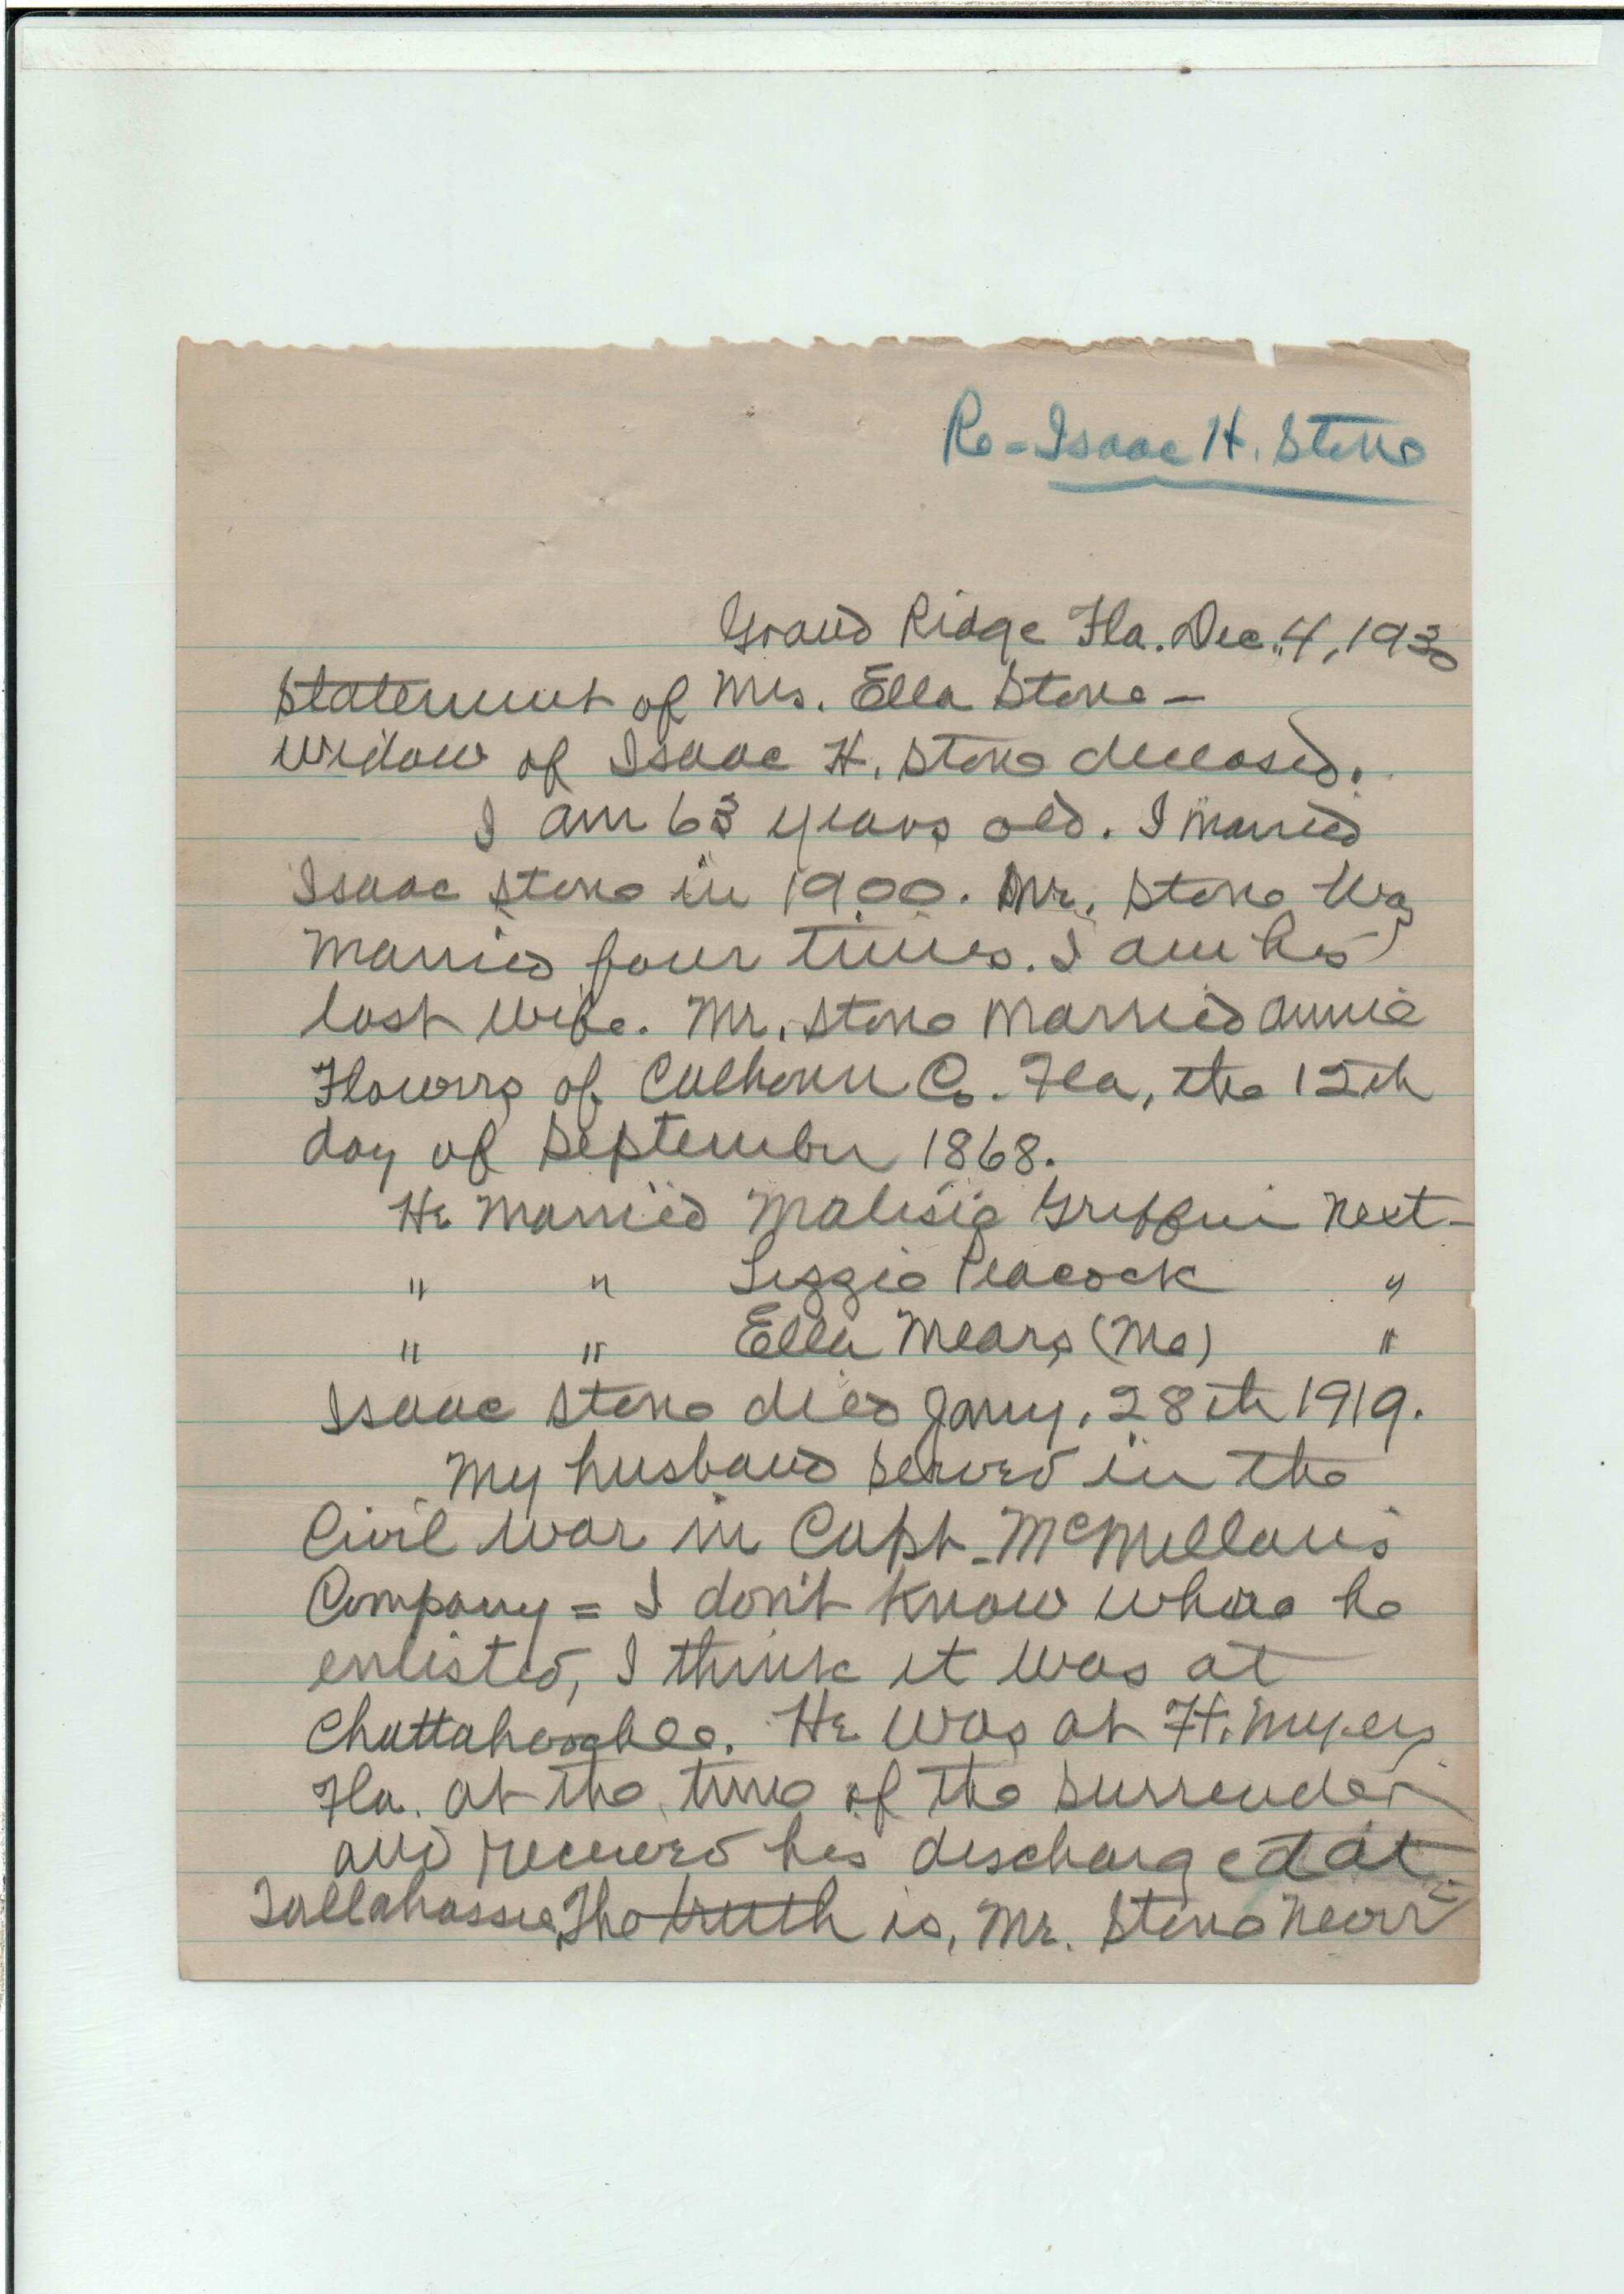 Re-Isaac H. Stone
Grand Ridge Fla. Dec. 4, 1930
Statement of Mrs. Ella Stone -
Widow of Isaac H. Stone deceased.
I am 63 years old. I married
Isaac Stone in 1900. Mr. Stone Was
married four times. I am his
last wife. Mr. Stone married Annie
Flowers of Calhoun Co. Fla, the 12th
day of September 1868.
He married Malisia Griffin next -
" " Lizzie Peacock "
" " Ella Mears (Me) "
Isaac Stone died Jany. 28th 1919.
My husband served in the
Civil War in Capt. McMillan's
Company = I don't know where he
enlisted, I think it was at
Chattahoochee. He was at Ft. Myers
Fla. at the time of the surrender
and received his discharged at
Tallahassee, The truth is, Mr. Stone never